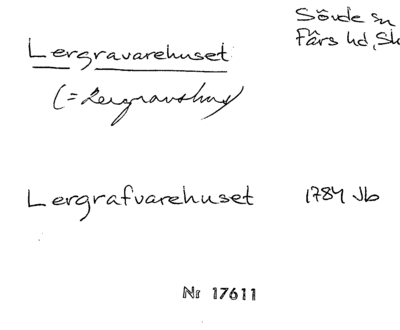 Sövde sn
Färs hd, Sk
Lergravarehuset
(= Lergravshus)
Lergrafvarehuset 1784 Jb
Nr 17611